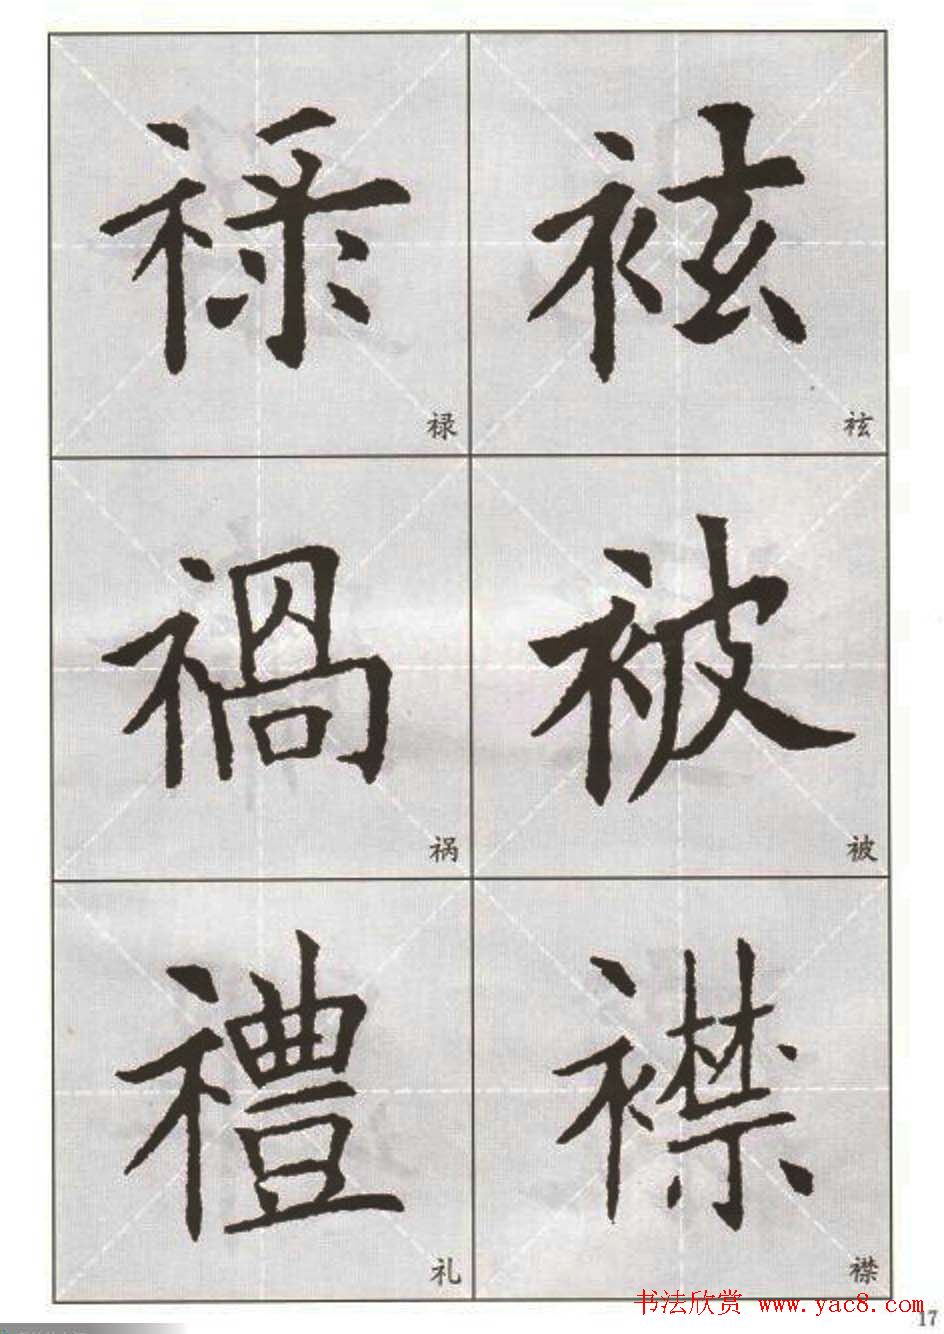 禄 袨
禄 袨
禍 被
祸 被
禮 襟
礼 襟
书法欣赏 www.yac8.com
17